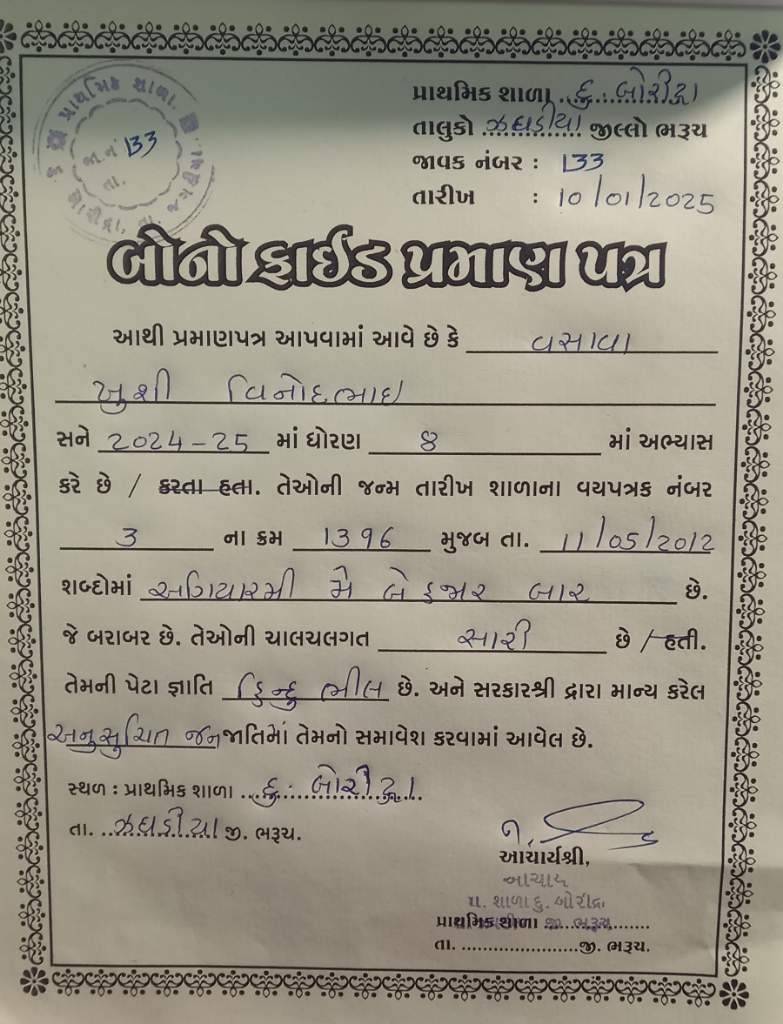 પ્રાથમિક શાળા. જા.નં 133 તા.
પ્રાથમિક શાળા ..દુ. બોરીદ્રા
તાલુકો ઝઘડીયા જીલ્લો ભરૂચ
જાવક નંબર : 133
તારીખ : 10/01/2025
બોનોફાઈડ પ્રમાણ પત્ર
આથી પ્રમાણપત્ર આપવામાં આવે છે કે વસાવા
ખુશી વિનોદભાઇ
સને 2024-25 માં ધોરણ ૪ માં અભ્યાસ
કરે છે / કરતા હતા. તેઓની જન્મ તારીખ શાળાના વયપત્રક નંબર
3 ના ક્રમ 1396 મુજબ તા. 11/05/2012
શબ્દોમાં અગિયારમી મે બે હજાર બાર છે.
જે બરાબર છે. તેઓની ચાલચલગત સારી છે / હતી.
તેમની પેટા જ્ઞાતિ હિન્દુ ભીલ છે. અને સરકારશ્રી દ્વારા માન્ય કરેલ
અનુસુચિત જનજાતિમાં તેમનો સમાવેશ કરવામાં આવેલ છે.
સ્થળ : પ્રાથમિક શાળા ...દુ. બોરીદ્રા..
તા. ..ઝઘડીયા જી. ભરૂચ.
આચાર્યશ્રી,
આચાર્ય
પ્રા. શાળા દુ. બોરીદ્રા
પ્રાથમિક શાળા જી. ભરૂચ
તા. ......................જી. ભરૂચ.